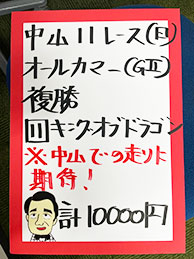 中山11レース(日)
オールカマー(GⅡ)
複勝
11キングオブドラゴン
※中山での走りに
期待!
計10000円